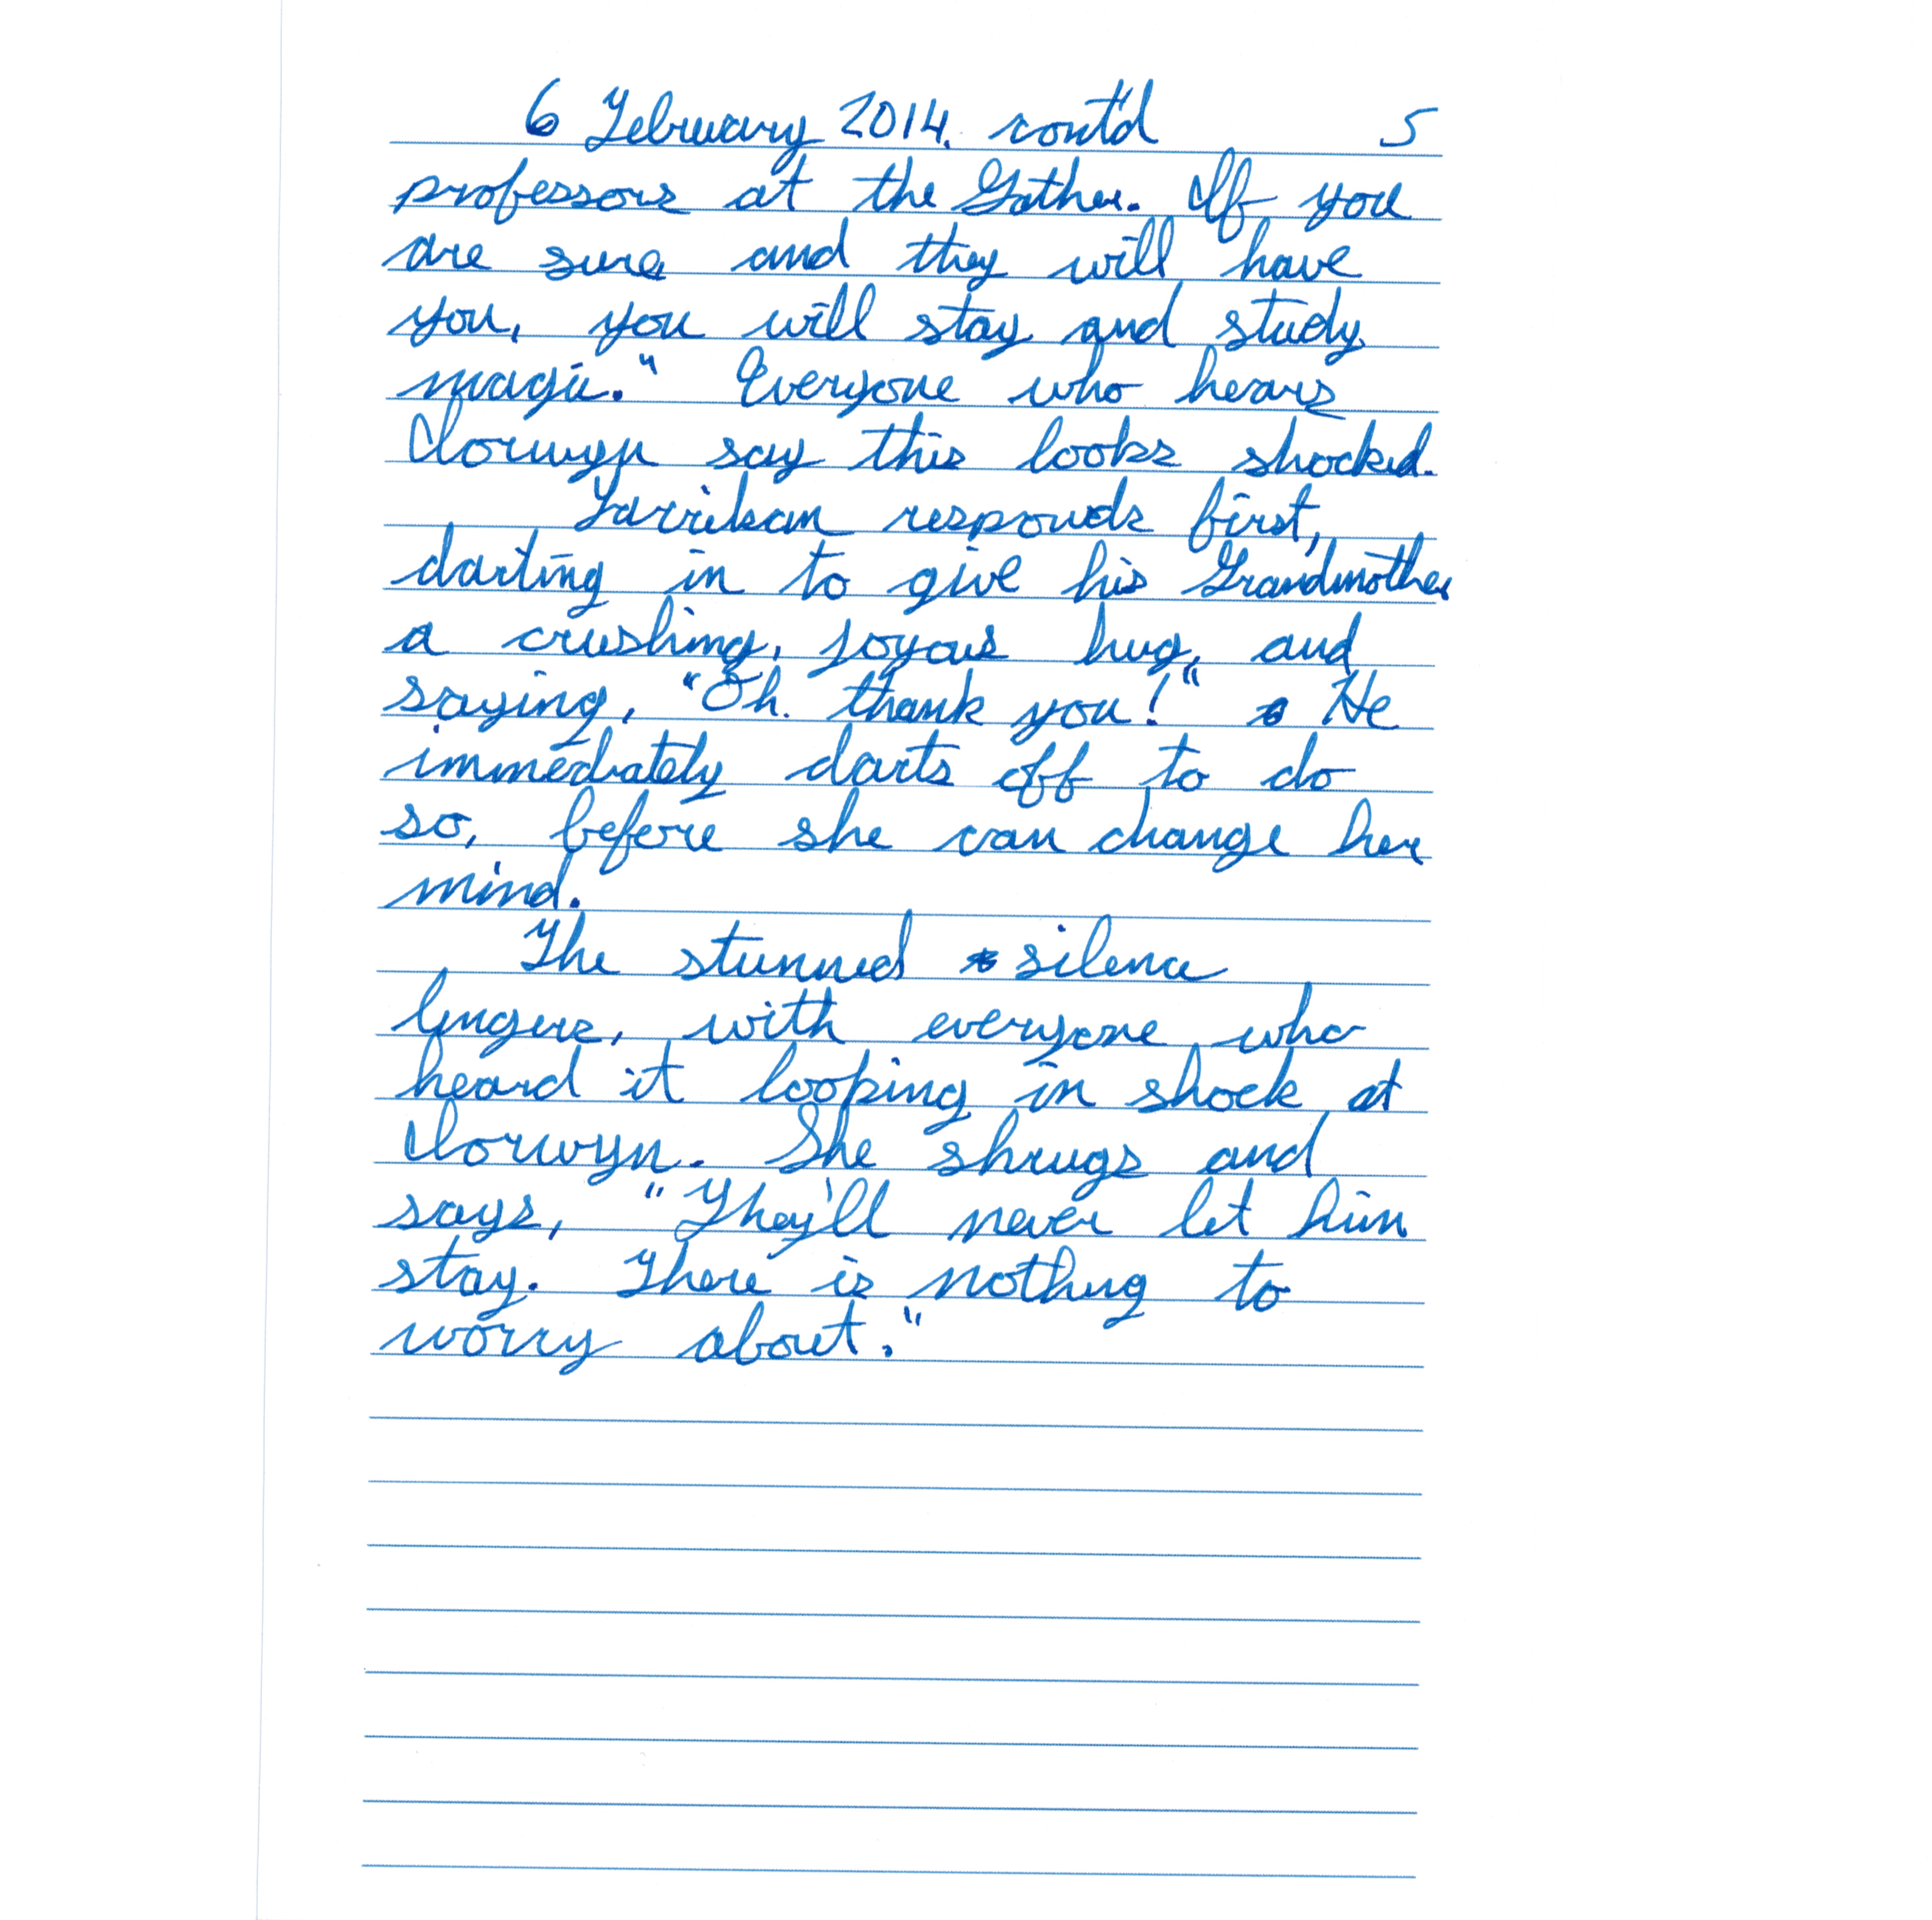 6 February 2014. cont'd 5
professors at the Gather. If you
are sure and they will have
you, you will stay and study
magic." Everyone who hears
Iorwyn say this looks shocked.
Tarrikam responds first,
darting in to give his Grandmother
a crushing, joyous hug, and
saying, "Oh. thank you!" He
immediately darts off to do
so, before she can change her
mind.
The stunned silence
lingers, with everyone who
heard it looking in shock at
Iorwyn. She shrugs and
says, "They'll never let him
stay. There is nothing to
worry about."